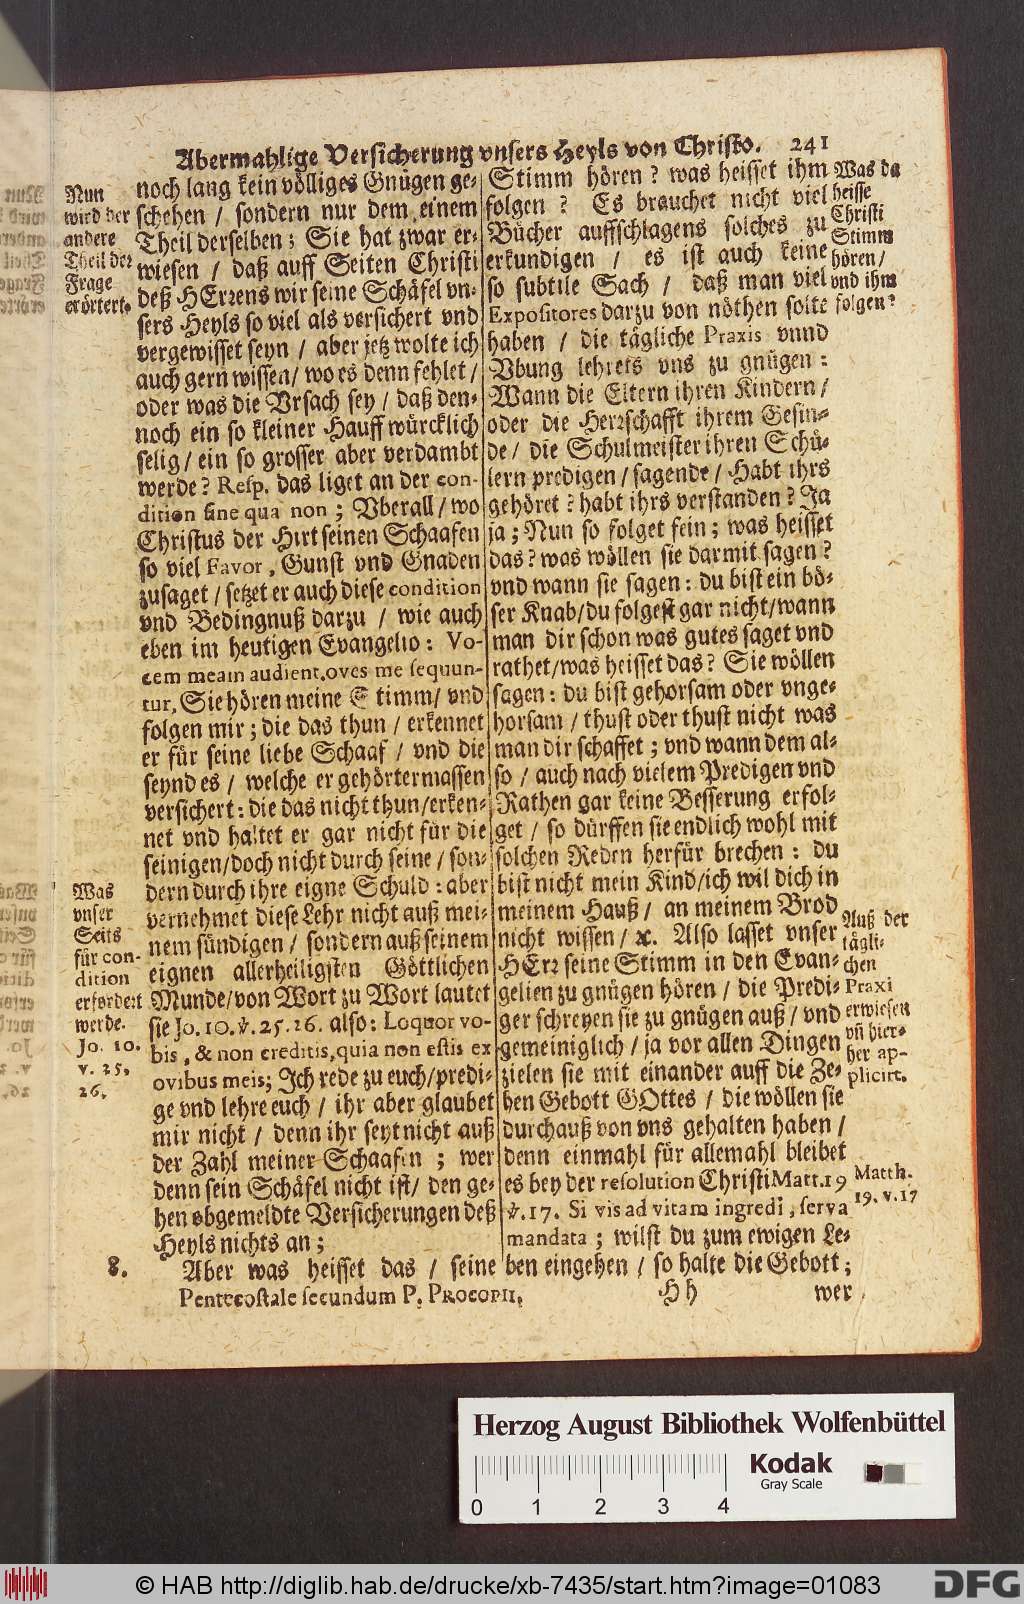 Abermahlige Versicherung vnsers Heyls von Christo. 241
Nun
wird der
andere
Theil der
Frage
erörtert.
noch lang kein völliges Gnügen ge-
schehen / sondern nur dem einem
Theil derselben; Sie hat zwar er-
wiesen / daß auff Seiten Christi
deß HErren wir seine Schäfel vn-
sers Heyls so viel als versichert vnd
vergewisset seyn / aber jetz wolte ich
auch gern wissen / wo es denn fehlet /
oder was die Vrsach sey / daß den-
noch ein so kleiner Hauff würcklich
selig / ein so grosser aber verdambt
werde? Resp. das liget an der con-
dition sine qua non; Vberall / wo
Christus der Hirt seinen Schaafen
so viel Favor, Gunst vnd Gnaden
zusaget / setzet er auch diese condition
vnd Bedingnuß darzu / wie auch
eben im heutigen Evangelio: Vo-
cem meam audient, oves me sequun-
tur, Sie hören meine Stimm / vnd
folgen mir; die das thun / erkennet
er für seine liebe Schaaf / vnd die
seynd es / welche er gehörtermassen
versichert: die das nicht thun / erken-
net vnd haltet er gar nicht für die
seinigen / doch nicht durch seine / son-
dern durch ihre eigne Schuld: aber
vernehmet diese Lehr nicht auß mei-
nem sündigen / sondern auß seinem
eignen allerheiligsten Göttlichen
Munde / von Wort zu Wort lautet
sie Jo. 10. v. 25. 26. also: Loquor vo-
bis, & non creditis, quia non estis ex
ovibus meis; Ich rede zu euch / predi-
ge vnd lehre euch / ihr aber glaubet
mir nicht / denn ihr seyt nicht auß
der Zahl meiner Schaafen; wer
denn sein Schäfel nicht ist / den ge-
hen obgemeldte Versicherungen deß
Heyls nichts an;
Was
vnser
Seits
für con-
dition
erfordert
werde.
Jo. 10.
v. 25.
26.
8. Aber was heisset das / seine
Stimm hören? was heisset ihm
folgen? Es brauchet nicht viel
Bücher auffschlagens solches zu
erkundigen / es ist auch keine
so subtile Sach / daß man viel
Expositores darzu von nöthen solte
haben / die tägliche Praxis vnnd
Vbung lehrets vns zu gnügen:
Wann die Eltern ihren Kindern /
oder die Herrschafft ihrem Gesin-
de / die Schulmeister ihren Schü-
lern predigen / sagende / Habt ihrs
gehöret? habt ihrs verstanden? Ja
ja; Nun so folget fein; was heisset
das? was wöllen sie darmit sagen?
vnd wann sie sagen: du bist ein bö-
ser Knab / du folgest gar nicht / wann
man dir schon was gutes saget vnd
rathet / was heisset das? Sie wöllen
sagen: du bist gehorsam oder vnge-
horsam / thust oder thust nicht was
man dir schaffet; vnd wann dem al-
so / auch nach vielem Predigen vnd
Rathen gar keine Besserung erfol-
get / so dürffen sie endlich wohl mit
solchen Reden herfür brechen: du
bist nicht mein Kind / ich wil dich in
meinem Hauß / an meinem Brod
nicht wissen / ꝛc. Also lasset vnser
HErr seine Stimm in den Evan-
gelien zu gnügen hören / die Predi-
ger schreyen sie zu gnügen auß / vnd
gemeiniglich / ja vor allen Dingen
zielen sie mit einander auff die Ze-
hen Gebott GOttes / die wöllen sie
durchauß von vns gehalten haben /
denn einmahl für allemahl bleibet
es bey der resolution Christi Matt. 19
v. 17. Si vis ad vitam ingredi, serva
mandata; wilst du zum ewigen Le-
ben eingehen / so halte die Gebott;
Was da
heisse
Christi
Stimm
hören /
vnd ihm
folgen?
Auß der
tägli-
chen
Praxi
erwiesen
vñ hier-
her ap-
plicirt.
Matth.
19. v. 17
Pentecostale secundum P. PROCOPII. Hh wer
Herzog August Bibliothek Wolfenbüttel
Kodak
Gray Scale
0 1 2 3 4
© HAB http://diglib.hab.de/drucke/xb-7435/start.htm?image=01083
DFG